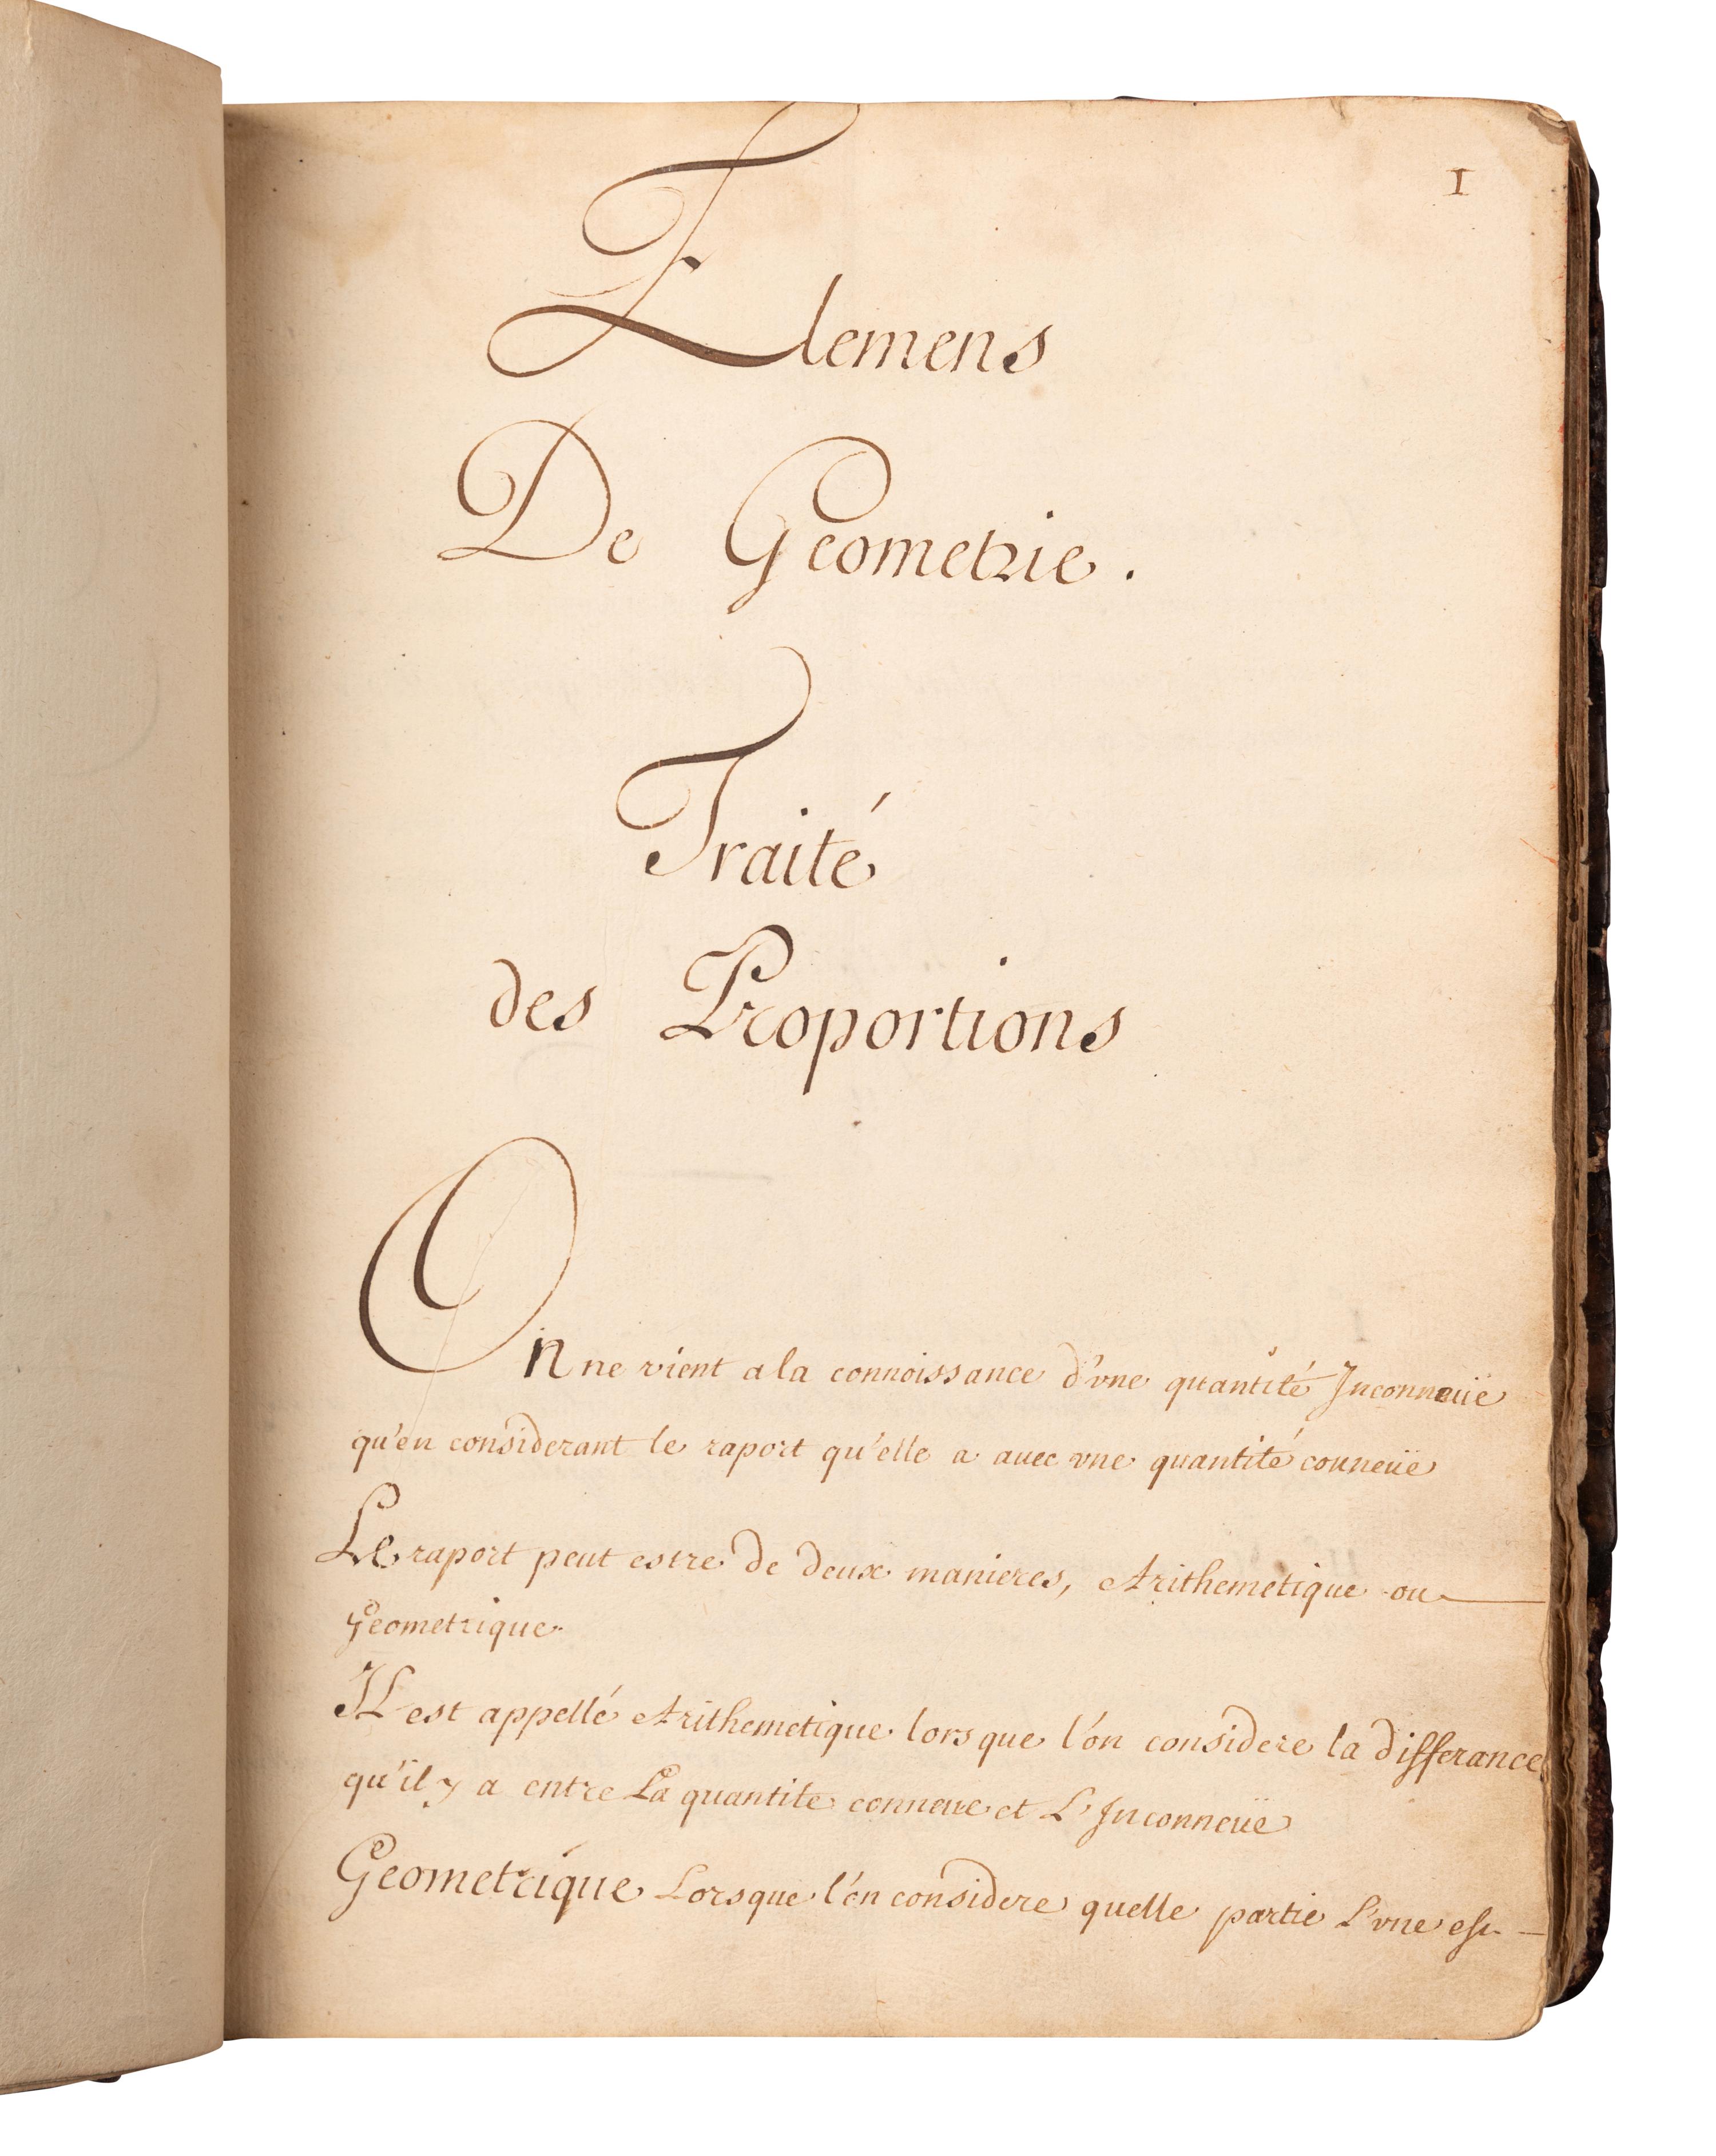 I
Elemens
De Geometrie.
Traité
des Proportions
On ne vient a la connoissance d'vne quantité Inconneuë
qu'en considerant le raport qu'elle a auec vne quantité conneuë
Le raport peut estre de deux manieres, Arithemetique ou
Geometrique.
Il est appellé Arithemetique lors que l'on considere la differance
qu'il y a entre La quantite conneue et L'Inconneuë
Geometrique Lorsque l'on considere quelle partie L'vne est